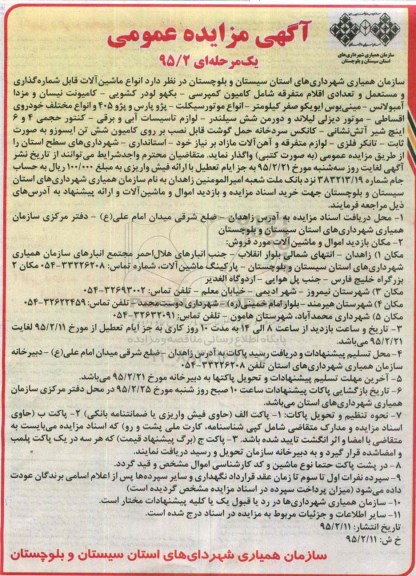 سازمان همیاری شهرداری‌های
استان سیستان و بلوچستان
آگهی مزایده عمومی
یک‌مرحله‌ای ۹۵/۲
سازمان همیاری شهرداری‌های استان سیستان و بلوچستان در نظر دارد انواع ماشین‌آلات قابل شماره‌گذاری
و مستعمل و تعدادی اقلام متفرقه شامل کامیون کمپرسی - بکهو لودر کشویی - کامیونت نیسان و مزدا
آمبولانس - مینی‌بوس ایویکو صفر کیلومتر - انواع موتورسیکلت - پژو پارس و پژو ۴۰۵ و انواع مختلف خودروی
اقساطی - موتور دیزلی لیلاند و دورمن شش سیلندر - لوازم تاسیسات آبی و برقی - کنتور حجمی ۴ و ۶
اینچ شیر آتش‌نشانی - کانکس سردخانه حمل گوشت قابل نصب بر روی کامیون شش تن ایسوزو به صورت
ثابت - تانکر فلزی - لوازم متفرقه و آهن‌آلات مازاد بر نیاز خود - استانداری - شهرداری‌های سطح استان را
از طریق مزایده عمومی (به صورت کتبی) واگذار نماید. متقاضیان محترم واجدشرایط می‌توانند از تاریخ نشر
آگهی لغایت روز سه‌شنبه مورخ ۹۵/۲/۲۱ به جز ایام تعطیل با ارائه فیش واریزی به مبلغ ۱۰۰/۰۰۰ ریال به حساب
جام شماره ۲۸۳۲۱۳/۱۹ نزد بانک ملت شعبه امیرالمومنین زاهدان به نام سازمان همیاری شهرداری‌های استان
سیستان و بلوچستان جهت خرید اسناد مزایده و بازدید اموال و ماشین‌آلات و ارائه پیشنهاد به آدرس‌های
ذیل مراجعه فرمایند.
۱- محل دریافت اسناد مزایده به آدرس زاهدان - ضلع شرقی میدان امام علی(ع) - دفتر مرکزی سازمان
همیاری شهرداری‌های استان سیستان و بلوچستان
۲- مکان بازدید اموال و ماشین‌آلات مورد فروش:
مکان ۱) زاهدان - انتهای شمالی بلوار انقلاب - جنب انبارهای هلال‌احمر مجتمع انبارهای سازمان همیاری
شهرداری‌های استان سیستان و بلوچستان - پارکینگ ماشین‌آلات، شماره تماس: ۳۳۲۲۶۲۰۸-۰۵۴ مکان ۲
بزرگراه خلیج فارس - جنب پل هوایی - اردوگاه الغدیر
مکان ۳) شهرستان نیمروز - شهر ادیمی - خیابان معلم - تلفن تماس: ۳۲۶۹۳۰۰۲-۰۵۴
مکان ۴) شهرستان هیرمند - بلوار امام خمینی(ره) - شهرداری دوست‌محمد - تلفن تماس: ۳۲۶۲۲۴۵۹-۰۵۴
مکان ۵) شهرداری محمدآباد، شهرستان هامون - تلفن تماس: ۳۲۶۳۲۰۹۱-۰۵۴
۳- تاریخ و ساعت بازدید از ساعت ۸ الی ۱۴ به مدت ۱۰ روز کاری به جز ایام تعطیل از مورخ ۹۵/۲/۱۱ لغایت
۹۵/۲/۲۱ می‌باشد.
۴- محل تسلیم پیشنهادات و دریافت رسید پاکات به آدرس زاهدان - ضلع شرقی میدان امام علی(ع) - دبیرخانه
سازمان همیاری شهرداری‌های استان تلفن تماس: ۳۳۲۲۶۲۰۸-۰۵۴
۵- آخرین مهلت تسلیم پیشنهادات و تحویل پاکتها به دبیرخانه مورخ ۹۵/۲/۲۱ می‌باشد.
۶- تاریخ بازگشایی پاکات پیشنهادات ساعت ۱۰ صبح روز شنبه مورخ ۹۵/۲/۲۵ در محل دفتر مرکزی سازمان
همیاری شهرداری‌های استان می‌باشد.
۷- نحوه تنظیم و تحویل پاکات: ۱- پاکت الف (حاوی فیش واریزی یا ضمانتنامه بانکی) ۲- پاکت ب (حاوی
اسناد مزایده و مدارک متقاضی شامل کپی شناسنامه، کارت ملی پشت و رو) که اسناد مزایده می‌بایست به
متقاضی با امضا و اثر انگشت تایید شده باشد. ۳- پاکت ج (برگ پیشنهاد قیمت) که هر سه در یک پاکت پلمپ
و امضاشده قرار گیرد و به دبیرخانه سازمان تحویل و رسید دریافت نمایند.
۸- در پشت پاکت حتما نوع ماشین و کد کارشناسی اموال مشخص و قید گردد.
۹- سپرده نفرات اول تا سوم تا زمان عقد قرارداد نگهداری و سایر سپرده‌ها پس از اعلام اسامی برندگان عودت
داده می‌شود (میزان پرداخت سپرده در اسناد مزایده مشخص گردیده است)
۱۰- سازمان همیاری شهرداری‌ها در رد یا قبول یک یا کلیه پیشنهادات مختار است.
۱۱- سایر اطلاعات و جزئیات مربوط به مزایده در اسناد درج شده است.
تاریخ انتشار: ۹۵/۲/۱۱
خ ش: ۹۵/۲/۱۱
سازمان همیاری شهرداری‌های استان سیستان و بلوچستان